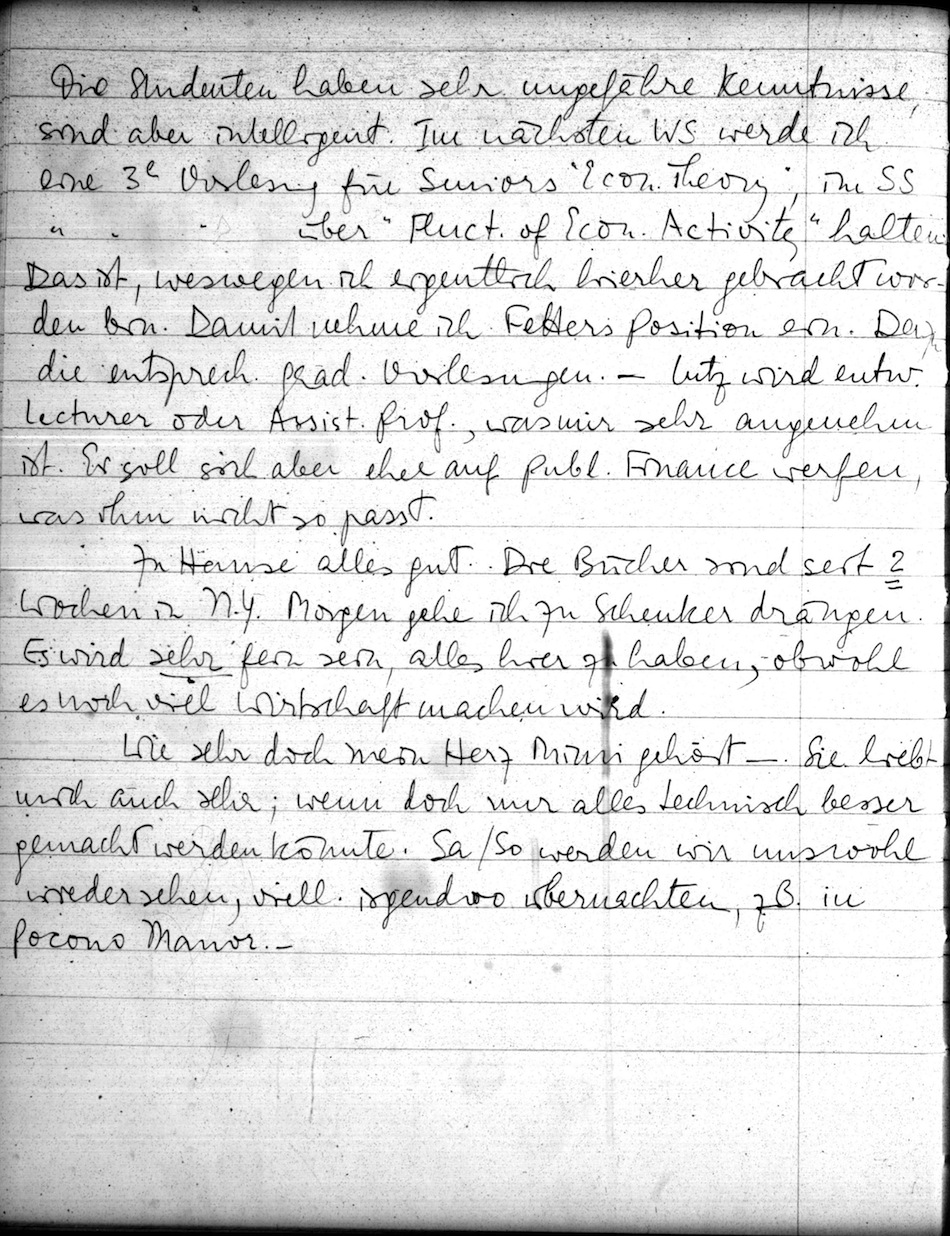 Die Studenten haben sehr ungefähre Kenntnisse,
sind aber intelligent. Im nächsten WS werde ich
eine 3e Vorlesung für Seniors "Econ. Theory", im SS
" " " über "Fluct. of Econ. Activity" halten.
Das ist, weswegen ich eigentlich hierher gebracht wor-
den bin. Damit nehme ich Fetters Position ein. Dazu
die entsprech. grad. Vorlesungen. – Lutz wird entw.
Lecturer oder Assist. Prof., was mir sehr angenehm
ist. Er soll sich aber eher auf Publ. Finance werfen,
was ihm nicht so passt.
Zu Hause alles gut. Die Bücher sind seit 2
Wochen in N.Y. Morgen gehe ich zu Schenker drängen.
Es wird sehr fein sein, alles hier zu haben, obwohl
es noch viel Wirtschaft machen wird.
Wie sehr doch mein Herz Mimi gehört –. Sie liebt
mich auch sehr; wenn doch nur alles technisch besser
gemacht werden könnte. Sa/So werden wir uns wohl
wiedersehen, viell. irgendwo übernachten, zB. in
Pocono Manor. –